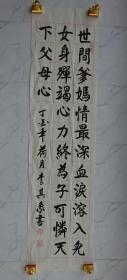 世間爹媽情最深血淚溶入兒
女身殫竭心力終為子可憐天
下父母心 丁亥年荷月李其京書